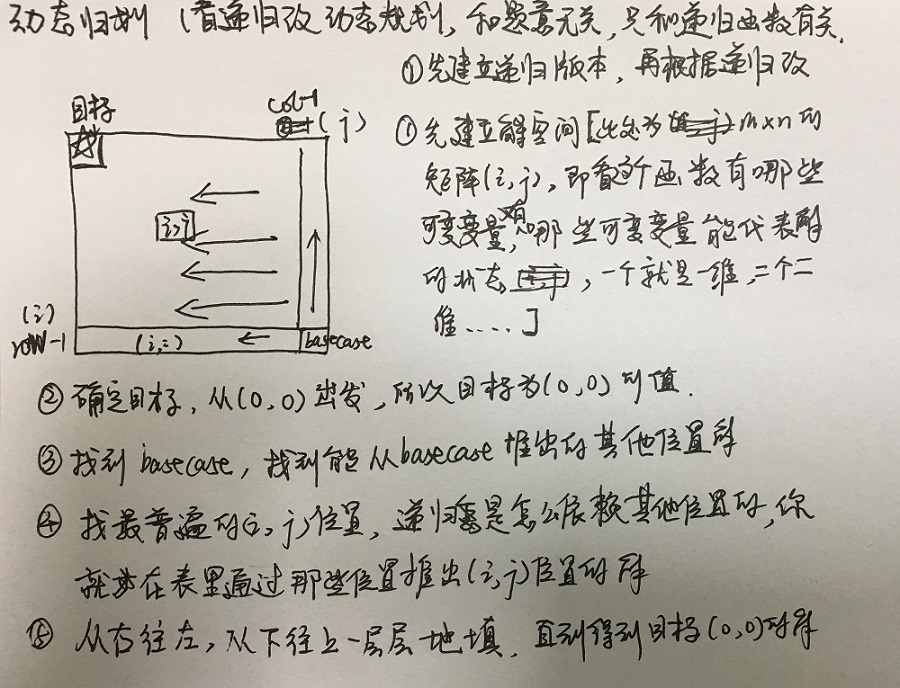 动态归划 (看递归改动态规划, 和题意无关, 只和递归函数有关.
①先建立递归版本, 再根据递归改
目标
col-1
(j)
i,j
(i)
row-1
(i,=)
basecase
①先建立解空间[此处为 m×n的
矩阵(i,j), 即看这个函数有哪些
可变变量, 哪些可变变量能代表解
的状态, 一个就是一维, 二个二
维.....]
②确定目标, 从(0,0)出发, 所以目标为(0,0)的值.
③找到basecase, 找到能从basecase推出的其他位置解
④找最普遍的(i,j)位置, 递归是怎么依赖其他位置的, 你
就要在表里通过那些位置推出(i,j)位置的解
⑤从右往左, 从下往上一层层地填, 直到得到目标(0,0)的解